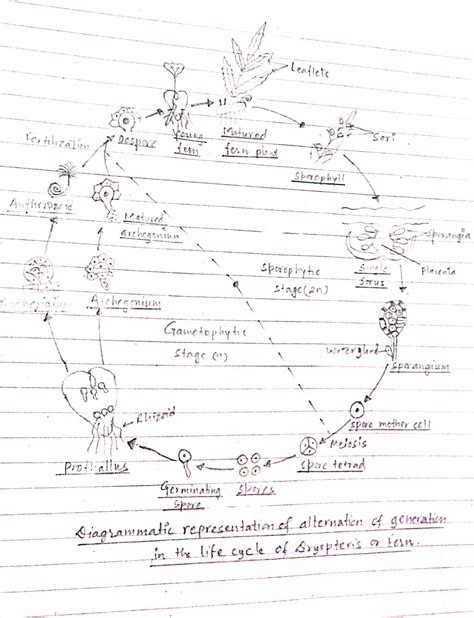 Leaflets
Sori
Fertilization
Oospore
Young
fern
Matured
fern plant
Sporophyll
Antherozoid
Matured
archegonium
Sporangia
Placenta
Single
Sorus
Sporophytic
Stage (2n)
Archegonium
Gametophytic
Stage (n)
Sporangium
Rhizoid
Spore mother cell
Meiosis
Spore tetrad
Prothallus
Germinating
Spore
Spores
Diagrammatic representation of alternation of generation
in the life cycle of Dryopteris or fern.